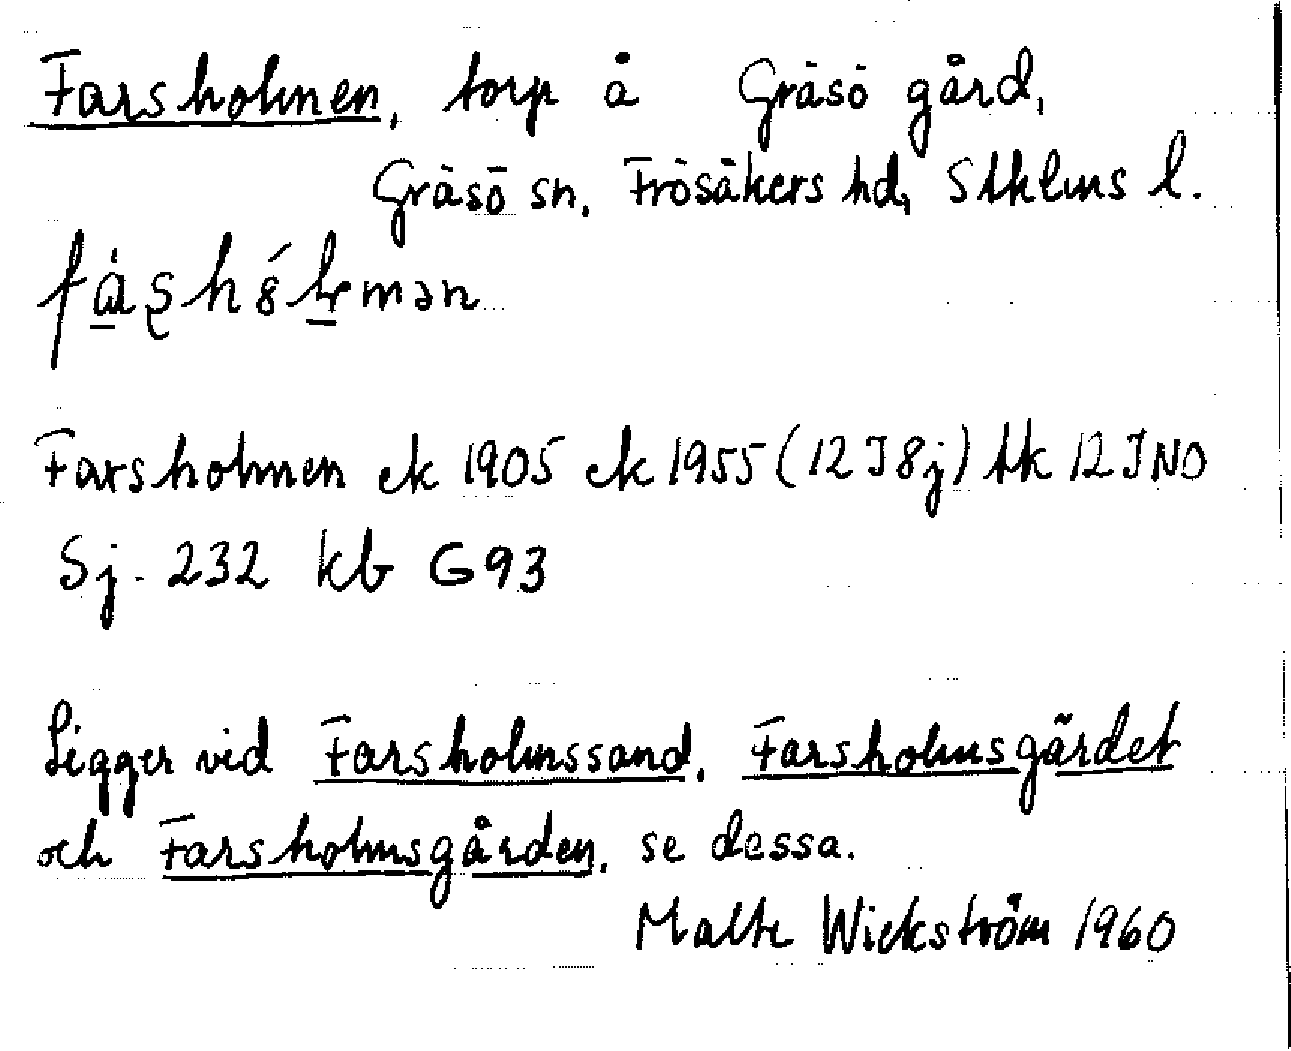 Farsholmen, torp å Gräsö gård,
Gräsö sn, Frösåkers hd, Sthlms l.
Farsholmen ek 1905 ek 1955 (12I8j) tk 12INO
Sj. 232 kb G93
Ligger vid Farsholmssand, Farsholmsgärdet
och Farsholmsgården, se dessa.
Malte Wickström 1960